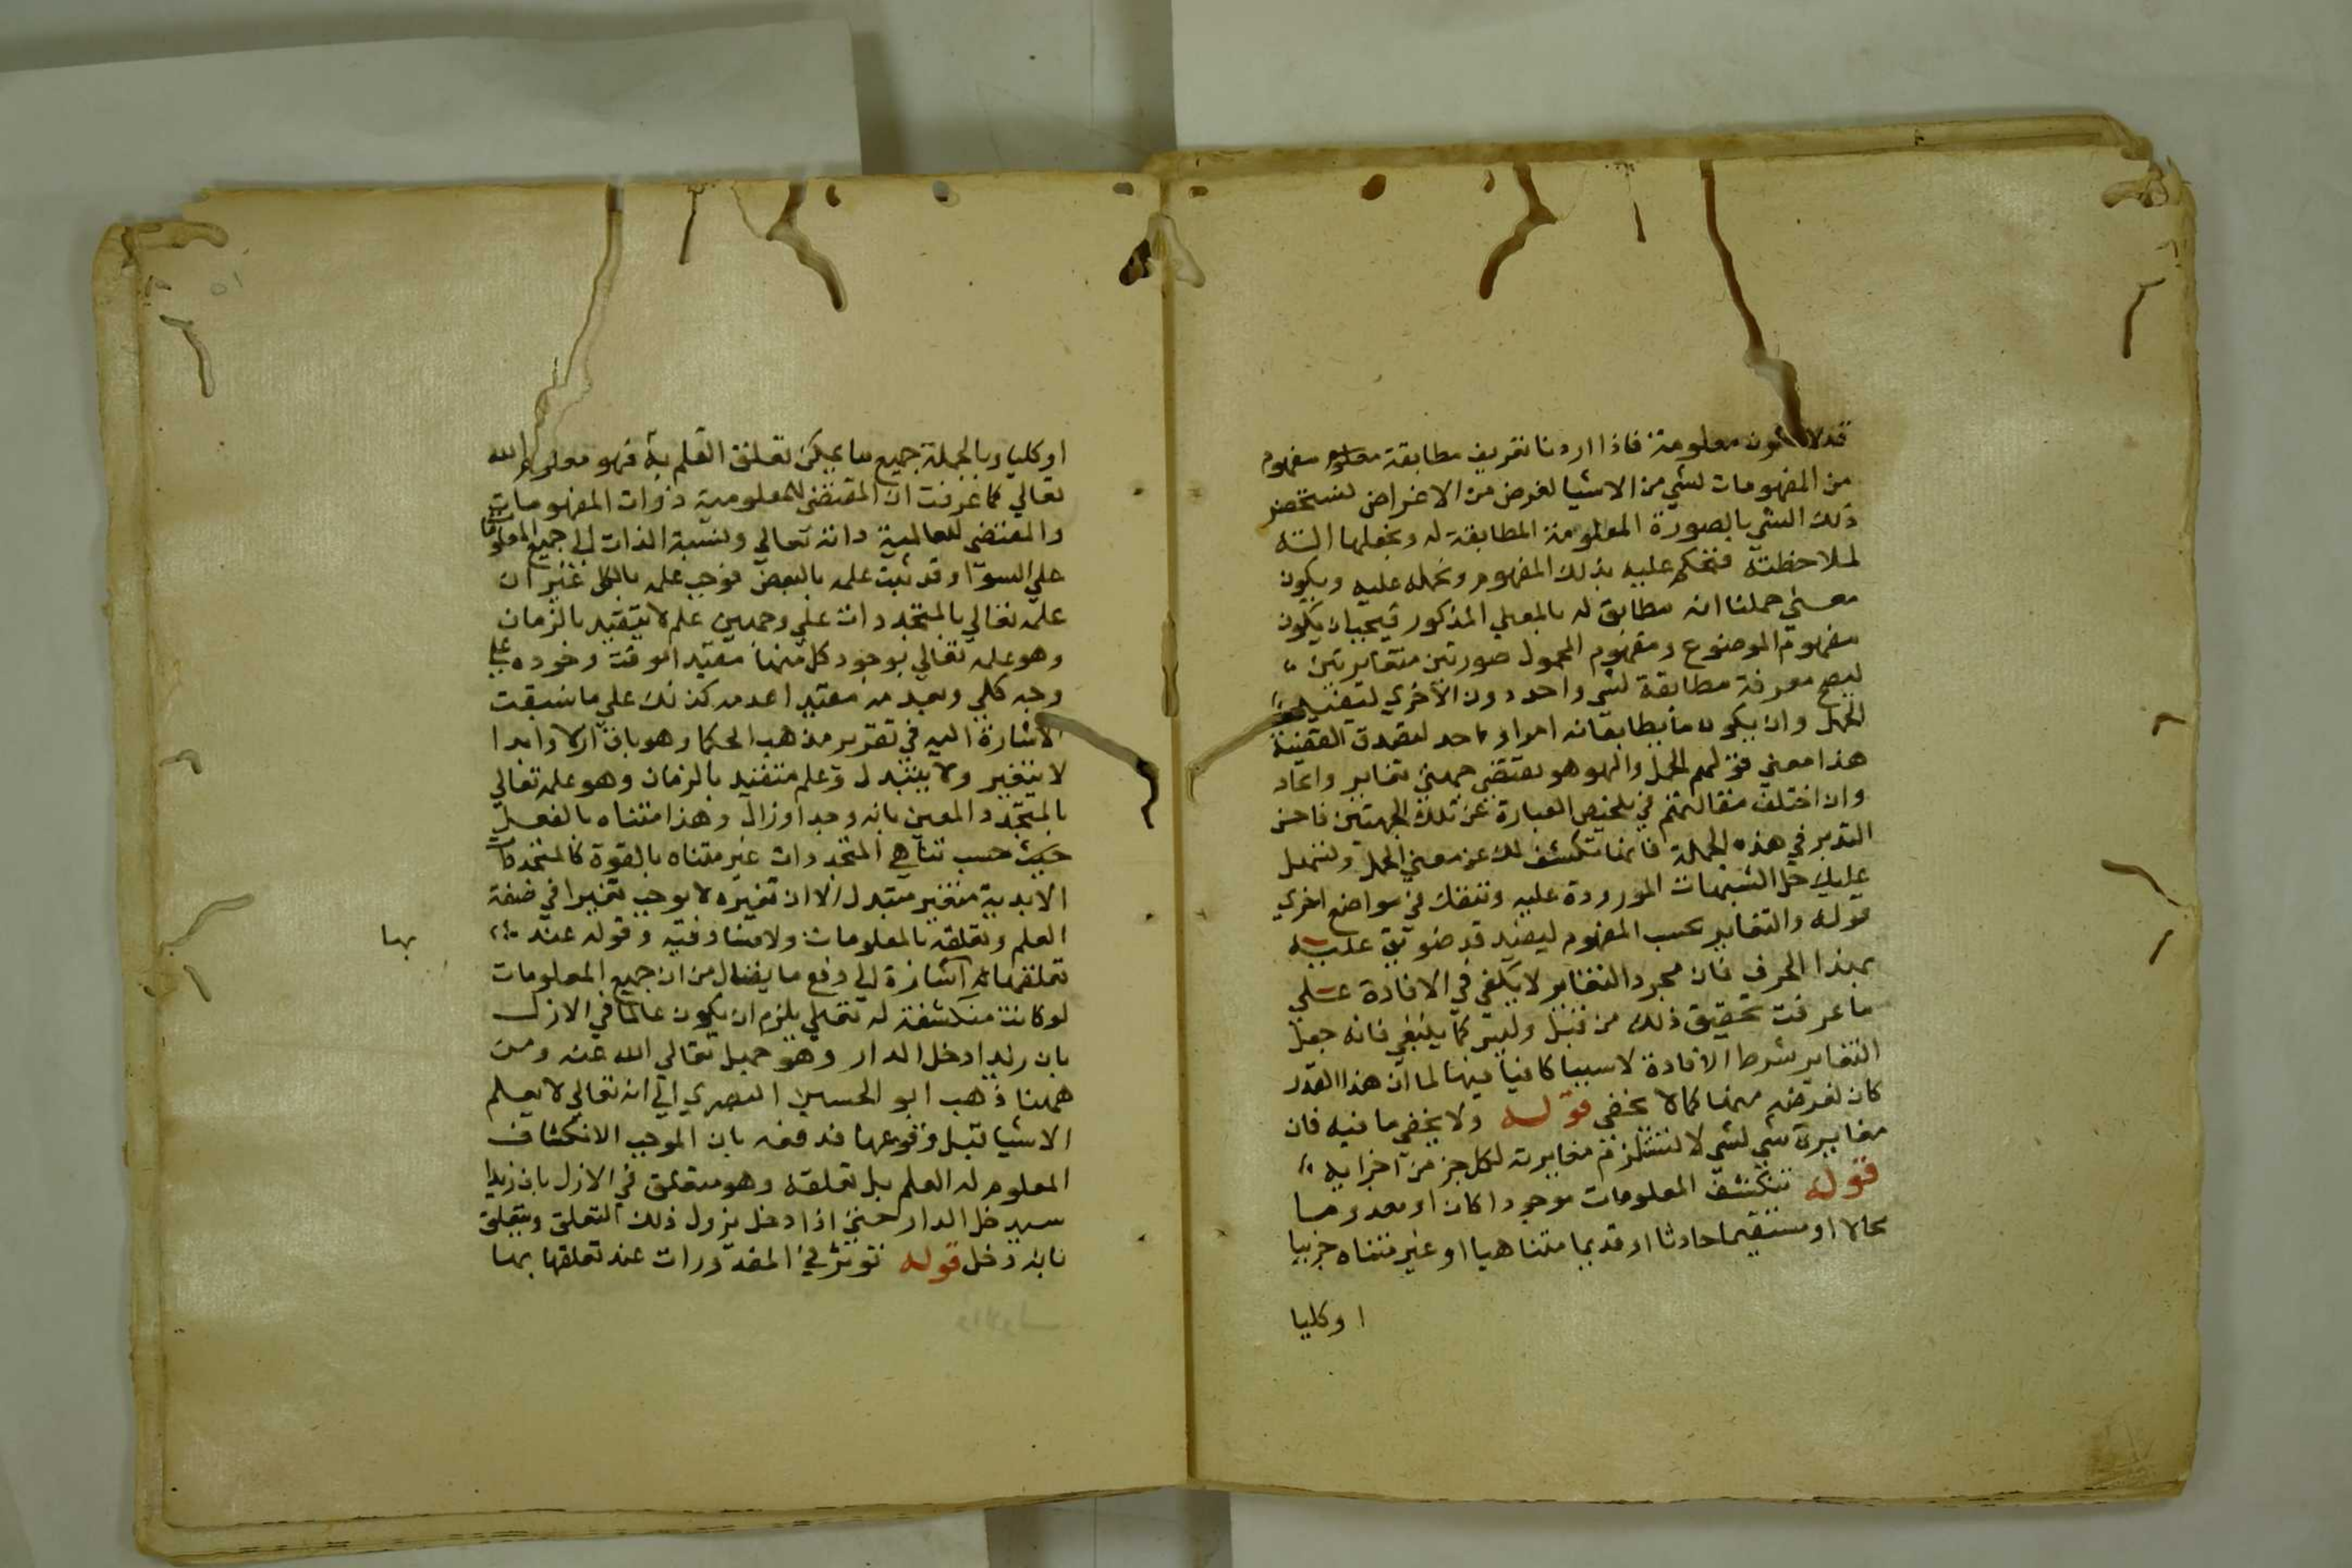 قد لا تكون معلومة فاذا اردنا تعريف مطابقة معلوم مفهوم
من المفهومات لشي من الاشيا لغرض من الاغراض لنستحضر
ذلك الشي بالصورة المعلومة المطابقة له ونجعلها الته
لملاحظته فنحكم عليه بذلك المفهوم ونحمله عليه ويكون
معنى حملنا انه مطابق له بالمعني المذكور فيجب ان يكون
مفهوم الموضوع ومفهوم المحمول صورتين متغايرتين
ليصح معرفة مطابقة لشي واحد دون الاخري ليفيد
الحمل وان يكون ما يطابقانه امرا واحد ليصدق القضية
هذا معني قولهم الحمل والهو هو يقتضي جهتي تغاير واتحاد
وان اختلف مقالتهم في تلخيص العبارة عن تلك الجهتين فاحسن
التدبر في هذه الجملة فانها تكشف لك عن معني الحمل وتسهل
عليك حل الشبهات الموروذة عليه وتنفعك في مواضع اخري
قوله والتغاير بحسب المفهوم ليفيد قد ضويق عليه
بهذا الحرف فان مجرد التغاير لا يكفي في الافادة علي
ما عرفت تحقيق ذلك من قبل وليس كما ينبغي فانه جعل
التغاير شرط الافادة لا سببا كافيا فيها لما ان هذا القدر
كان لغرضه مهما كما لا يخفي قوله ولا يخفي ما فيه فان
مغايرة شي لشي لا تستلزم مغايرته لكل جز من اجزايه
قوله تنكشف المعلومات موجودا كان او معدوما
محالا او مستقيما حادثا او قديما متناهيا او غير متناه جزييا
او كليا
او كليا وبالجملة جميع ما يمكن تعلق العلم به فهو معلوم الله
تعالي كما عرفت ان المقتضي للمعلومية ذوات المفهومات
والمقتضي للعالمية ذاته تعالي ونسبة الذات الي جميع المعلومات
علي السوا وقد ثبت علمه بالبعض فوجب علمه بالكل غير ان
علمه تعالي بالمتجددات علي وجهين علم لا يتقيد بالزمان
وهو علمه تعالي بوجود كل منها مقيدا بوقت وجوده علي
وجه كلي وبعدمه مقيدا بعدمه كذلك علي ما سبقت
الاشارة اليه في تقرير مذهب الحكما وهو باق ازلا وابدا
لا يتغير ولا يتبدل وعلم متقيد بالزمان وهو علمه تعالي
بالمتجدد المعين بانه وجد او زال وهذا متناه بالفعل
حيث حسب تناهي المتجددات غير متناه بالقوة كالمتجددات
الابدية متغير متبدل الا ان تغيره لا يوجب تغيرا في صفة
العلم وتعلقه بالمعلومات ولا مفسدة فيه وقوله عند
بها
تعلقها به اشارة الي دفع ما يقال من ان جميع المعلومات
لو كانت منكشفة له تعالي يلزم ان يكون عالما في الازل
بان زيدا دخل الدار وهو جهل تعالي الله عنه ومن
ههنا ذهب ابو الحسين البصري الي انه تعالي لا يعلم
الاشيا قبل وقوعها فدفعه بان الموجب الانكشاف
المعلوم له العلم بل تعلقه وهو متعلق في الازل بان زيدا
سيدخل الدار حتي اذا دخل يزول ذلك التعلق ويتعلق
بانه دخل قوله توثر في المقدورات عند تعلقها بها